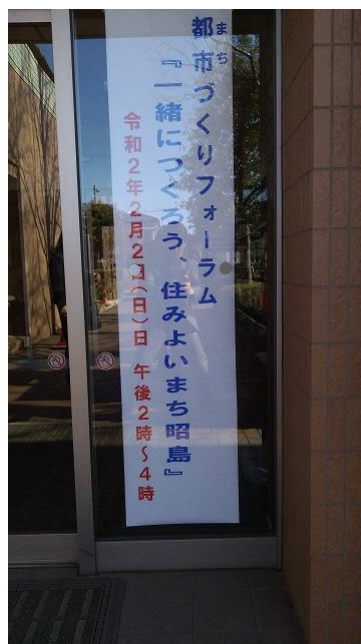 都市づくりフォーラム
まち
『一緒につくろう、住みよいまち昭島』
令和2年2月2日(日)日 午後2時～4時